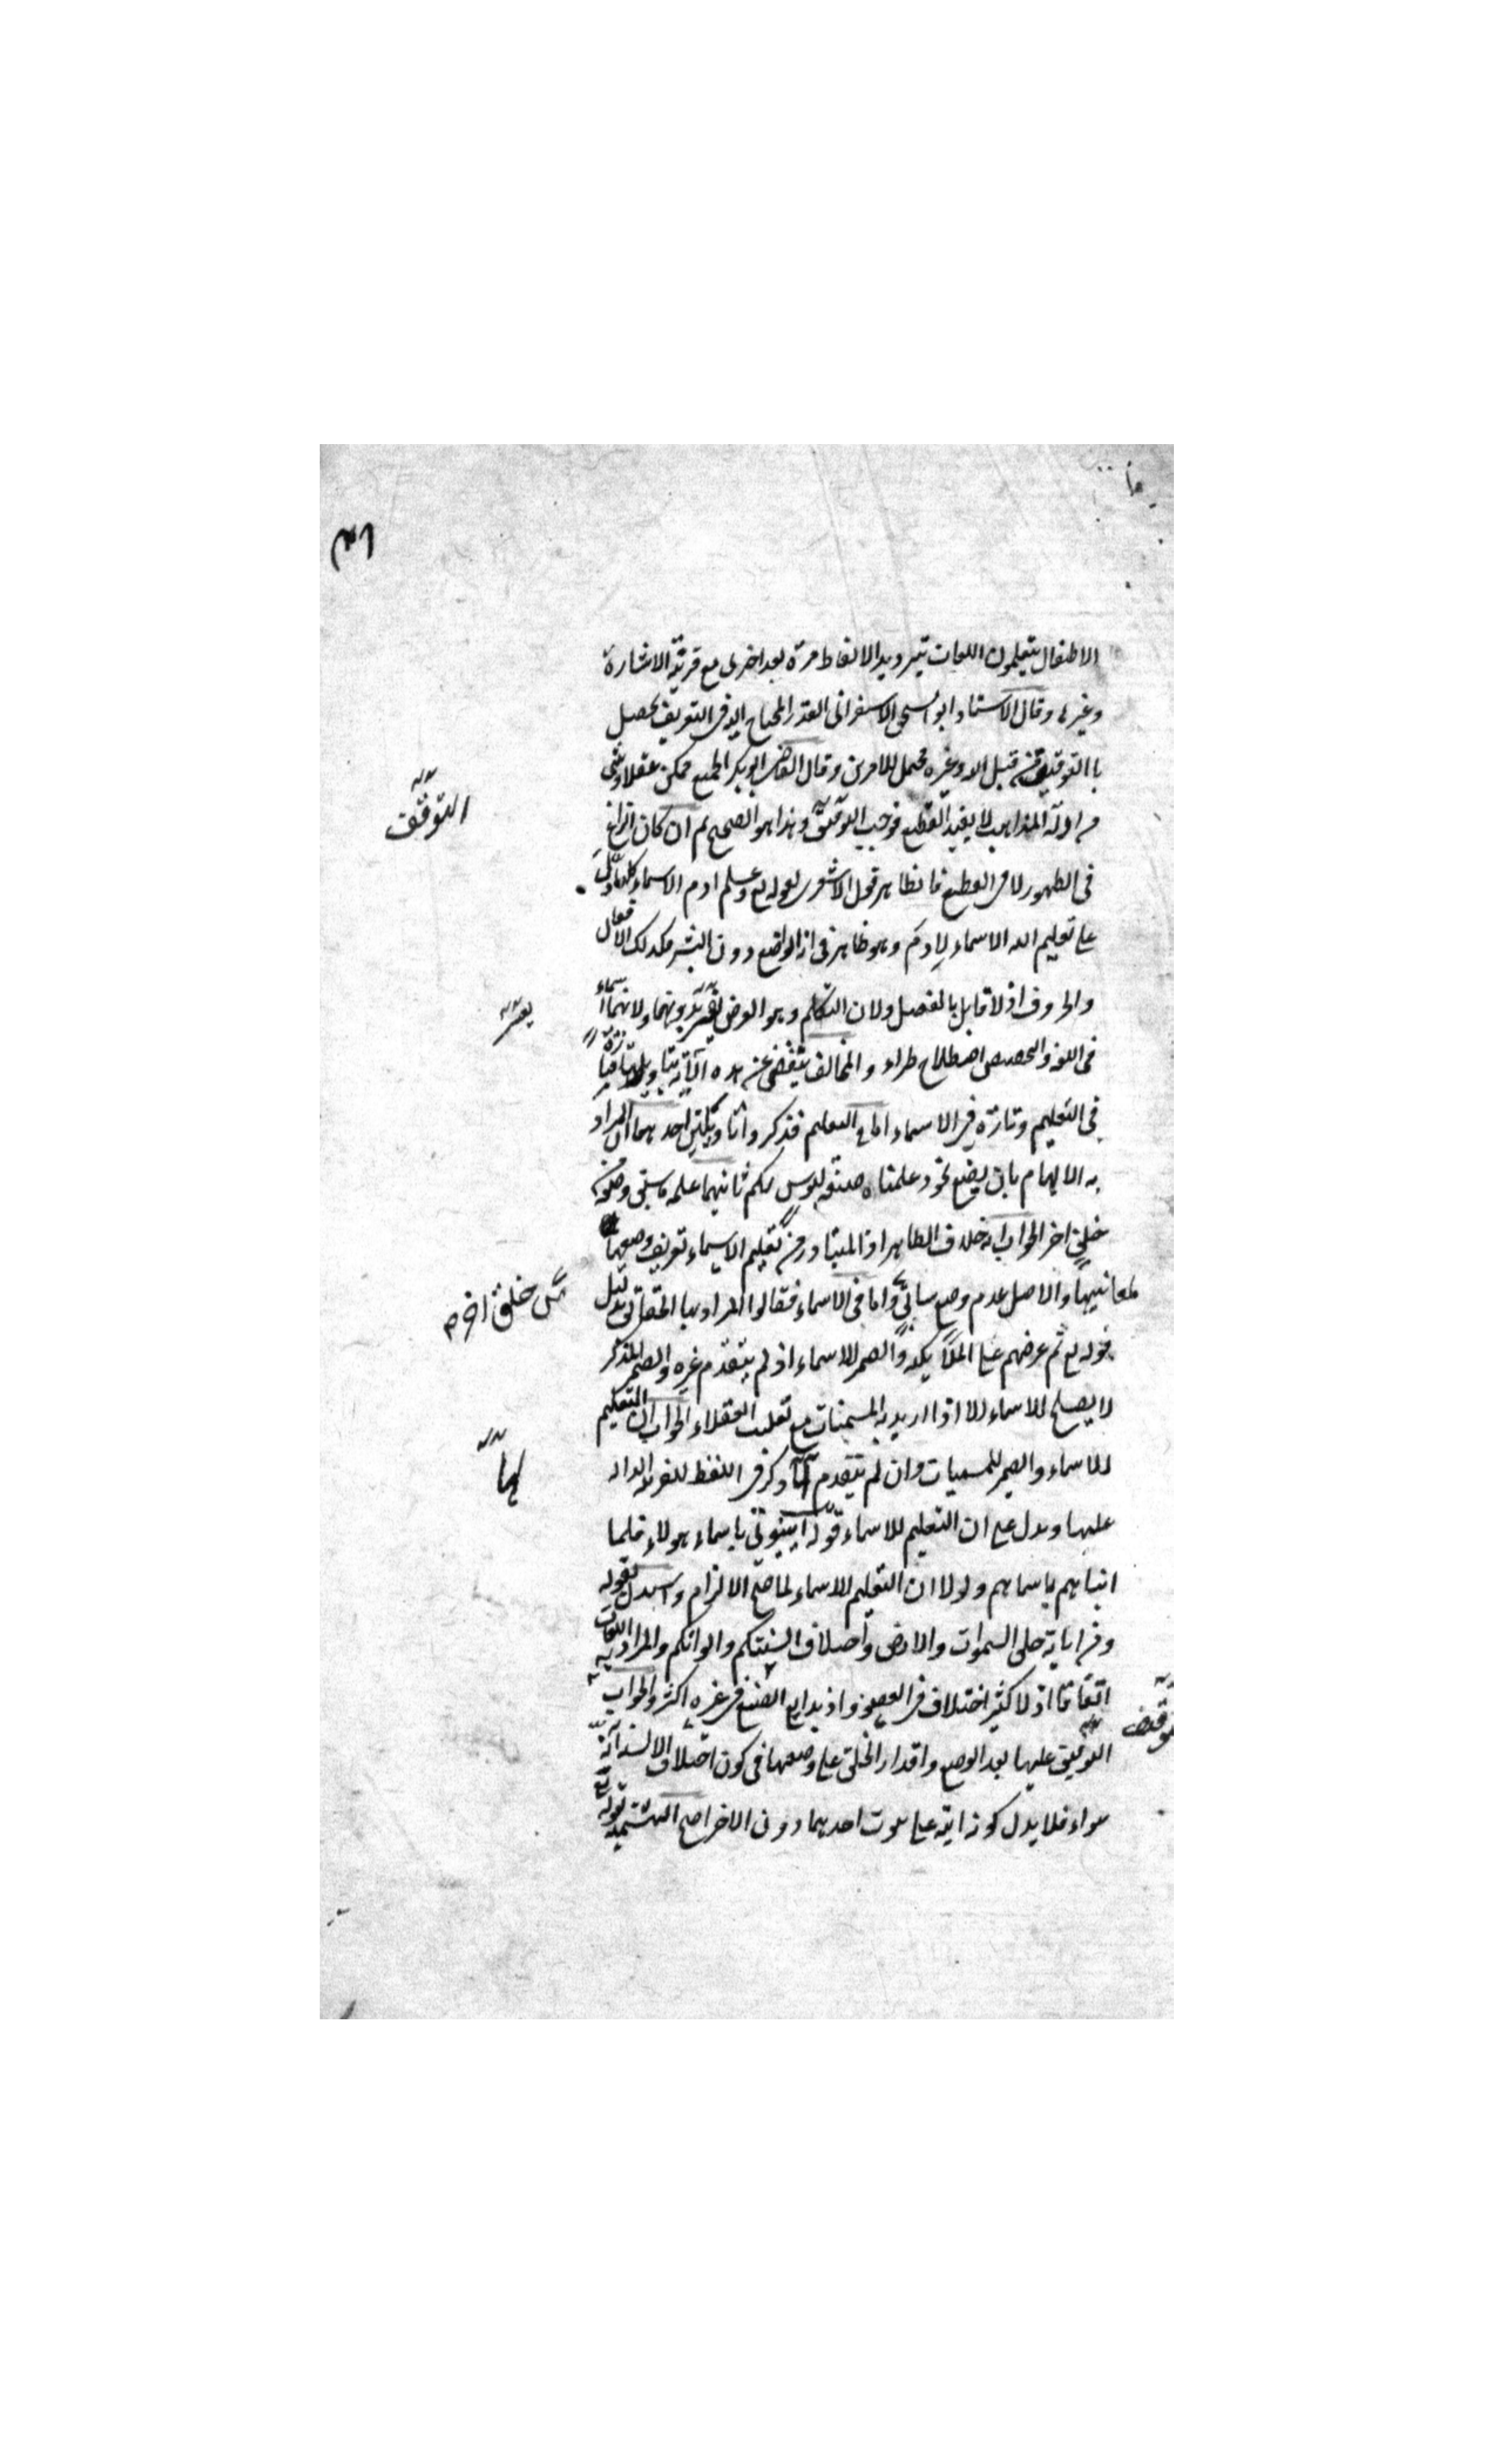 ٣١
الاطفال يتعلمون اللغات بترديد الالفاظ مرة بعد اخرى مع قرينة الاشارة
وغيرها وقال الاستاد ابو اسحق الاسفرانى القدر المحتاج اليه فى التعريف يحصل
باالتوقيف من قبل الله وغيره محتمل للامرين وقال القاضى ابو بكر الجميع ممكن عقلا وشى
من ادلة المذاهب لا يفيد القطع فوجب التوقف وهذا هو الصحيح ثم ان كان النزاع
فى الظهور لا فى القطع فالظاهر قول الاشعرى لقوله تع وعلم ادم الاسماء كلها دل
على تعليم الله الاسماء لادم وهو ظاهر فى انه الواضع دون البشر فكذلك الافعال
والحروف اذ لا قايل بالفصل ولان التكلم وهو الغرض يعسر بدونهما ولانهما اسماء
فى اللغة والتخصيص اصطلاح طراء والمخالف يتفضى عن هذه الآية بتاويلها تارة
فى التعليم وتارة فى الاسماء اما فى التعليم فذكروا تاويلين احدهما ان المراد
به الالهام بان يضع نحو وعلمناه صنعة لبوس لكم ثانيهما علمه ما سبق وضعه
خلق اخر الجواب انه خلاف الظاهر اذ المتبادر من تعليم الاسماء تعريف وضعها
لمعانيها والاصل عدم وضع سابق واما فى الاسماء فقالوا المراد بها الحقايق بدليل
قوله تع ثم عرضهم على الملائكة والضمير للاسماء اذ لم يتقدم غيره والضمير المذكر
لا يصلح للاسماء الا اذا اريد به المسميات مع تغليب العقلاء الجواب ان التعليم
للاسماء والضمير للمسميات وان لم يتقدم لها ذكر فى اللفظ للقرينة الدالة
عليها ويدل على ان التعليم للاسماء قوله انبئونى باسماء هولاء فلما
انباهم باسماهم ولولا ان التعليم للاسماء لما صح الالزام واستدل بقوله
ومن اياته خلق السموات والارض واختلاف السنتكم والوانكم والمراد به اللغات
اتفاقا اذ لا كثير اختلاف فى العضو واذ بدايع الصنع فى غيره اكثر والجواب
التوقيف عليها بعد الوضع واقدار الخلق على وضعها فى كون اختلاف الالسنة آية
سواء فلا يدل كونه اية على ثبوت احدهما دون الاخر احتج البهشمية بقوله تع
التوقف
يعسر
خلق اخر
لها